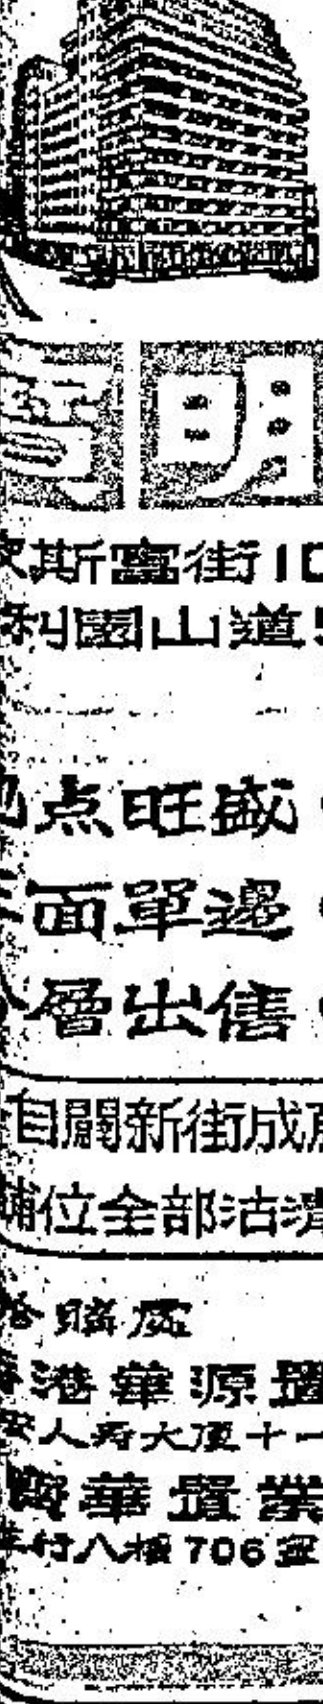 明
斯富街10
利園山道
点旺盛
面單邊
層出售
自闢新街成
舖位全部沽清
洽購處
港華源置
安人寿大厦十一
興華置業
行八樓706室